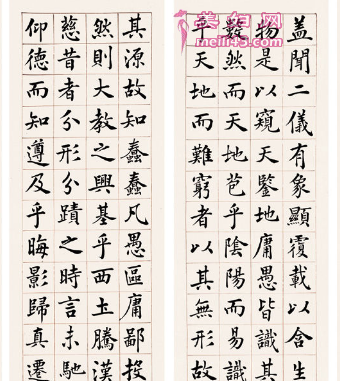 美妇网
meili43.com
蓋聞二儀有象顯覆載以含生
物是以窺天鑒地庸愚皆識其
數然而天地苞乎陰陽而易識
乎天地而難窮者以其無形故
其源故知蠢蠢凡愚區庸鄙投
然則大教之興基乎西土騰漢
慈昔者分形分蹟之時言未馳
仰德而知遵及乎晦影歸真遷